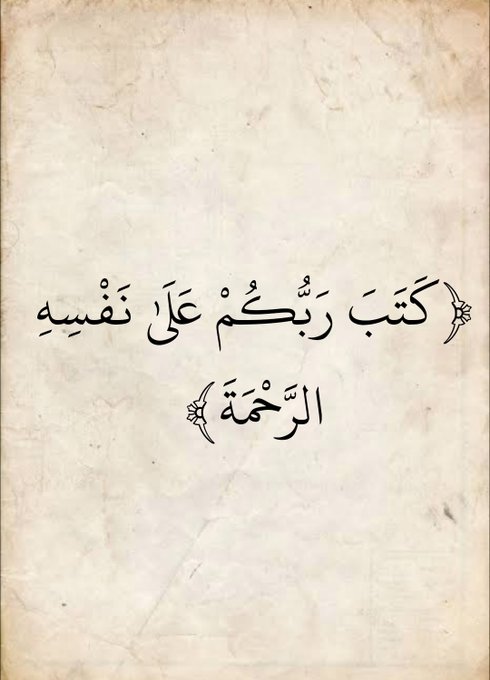 ﴿كَتَبَ رَبُّكُمْ عَلَىٰ نَفْسِهِ
الرَّحْمَةَ﴾